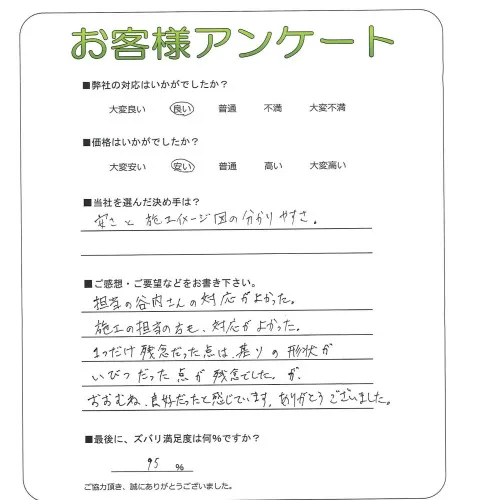 お客様アンケート
■弊社の対応はいかがでしたか？
大変良い 良い 普通 不満 大変不満
■価格はいかがでしたか？
大変安い 安い 普通 高い 大変高い
■当社を選んだ決め手は？
安さと施工イメージ図の分かりやすさ。
■ご感想・ご要望などをお書き下さい。
担当の谷内さんの対応がよかった。
施工の担当の方も、対応がよかった。
1つだけ残念だった点は、墓リの形状が
いびつだった点が残念でした。が、
おおむね、良好だったと感じています。ありがとうございました。
■最後に、ズバリ満足度は何%ですか？
95 %
ご協力頂き、誠にありがとうございました。